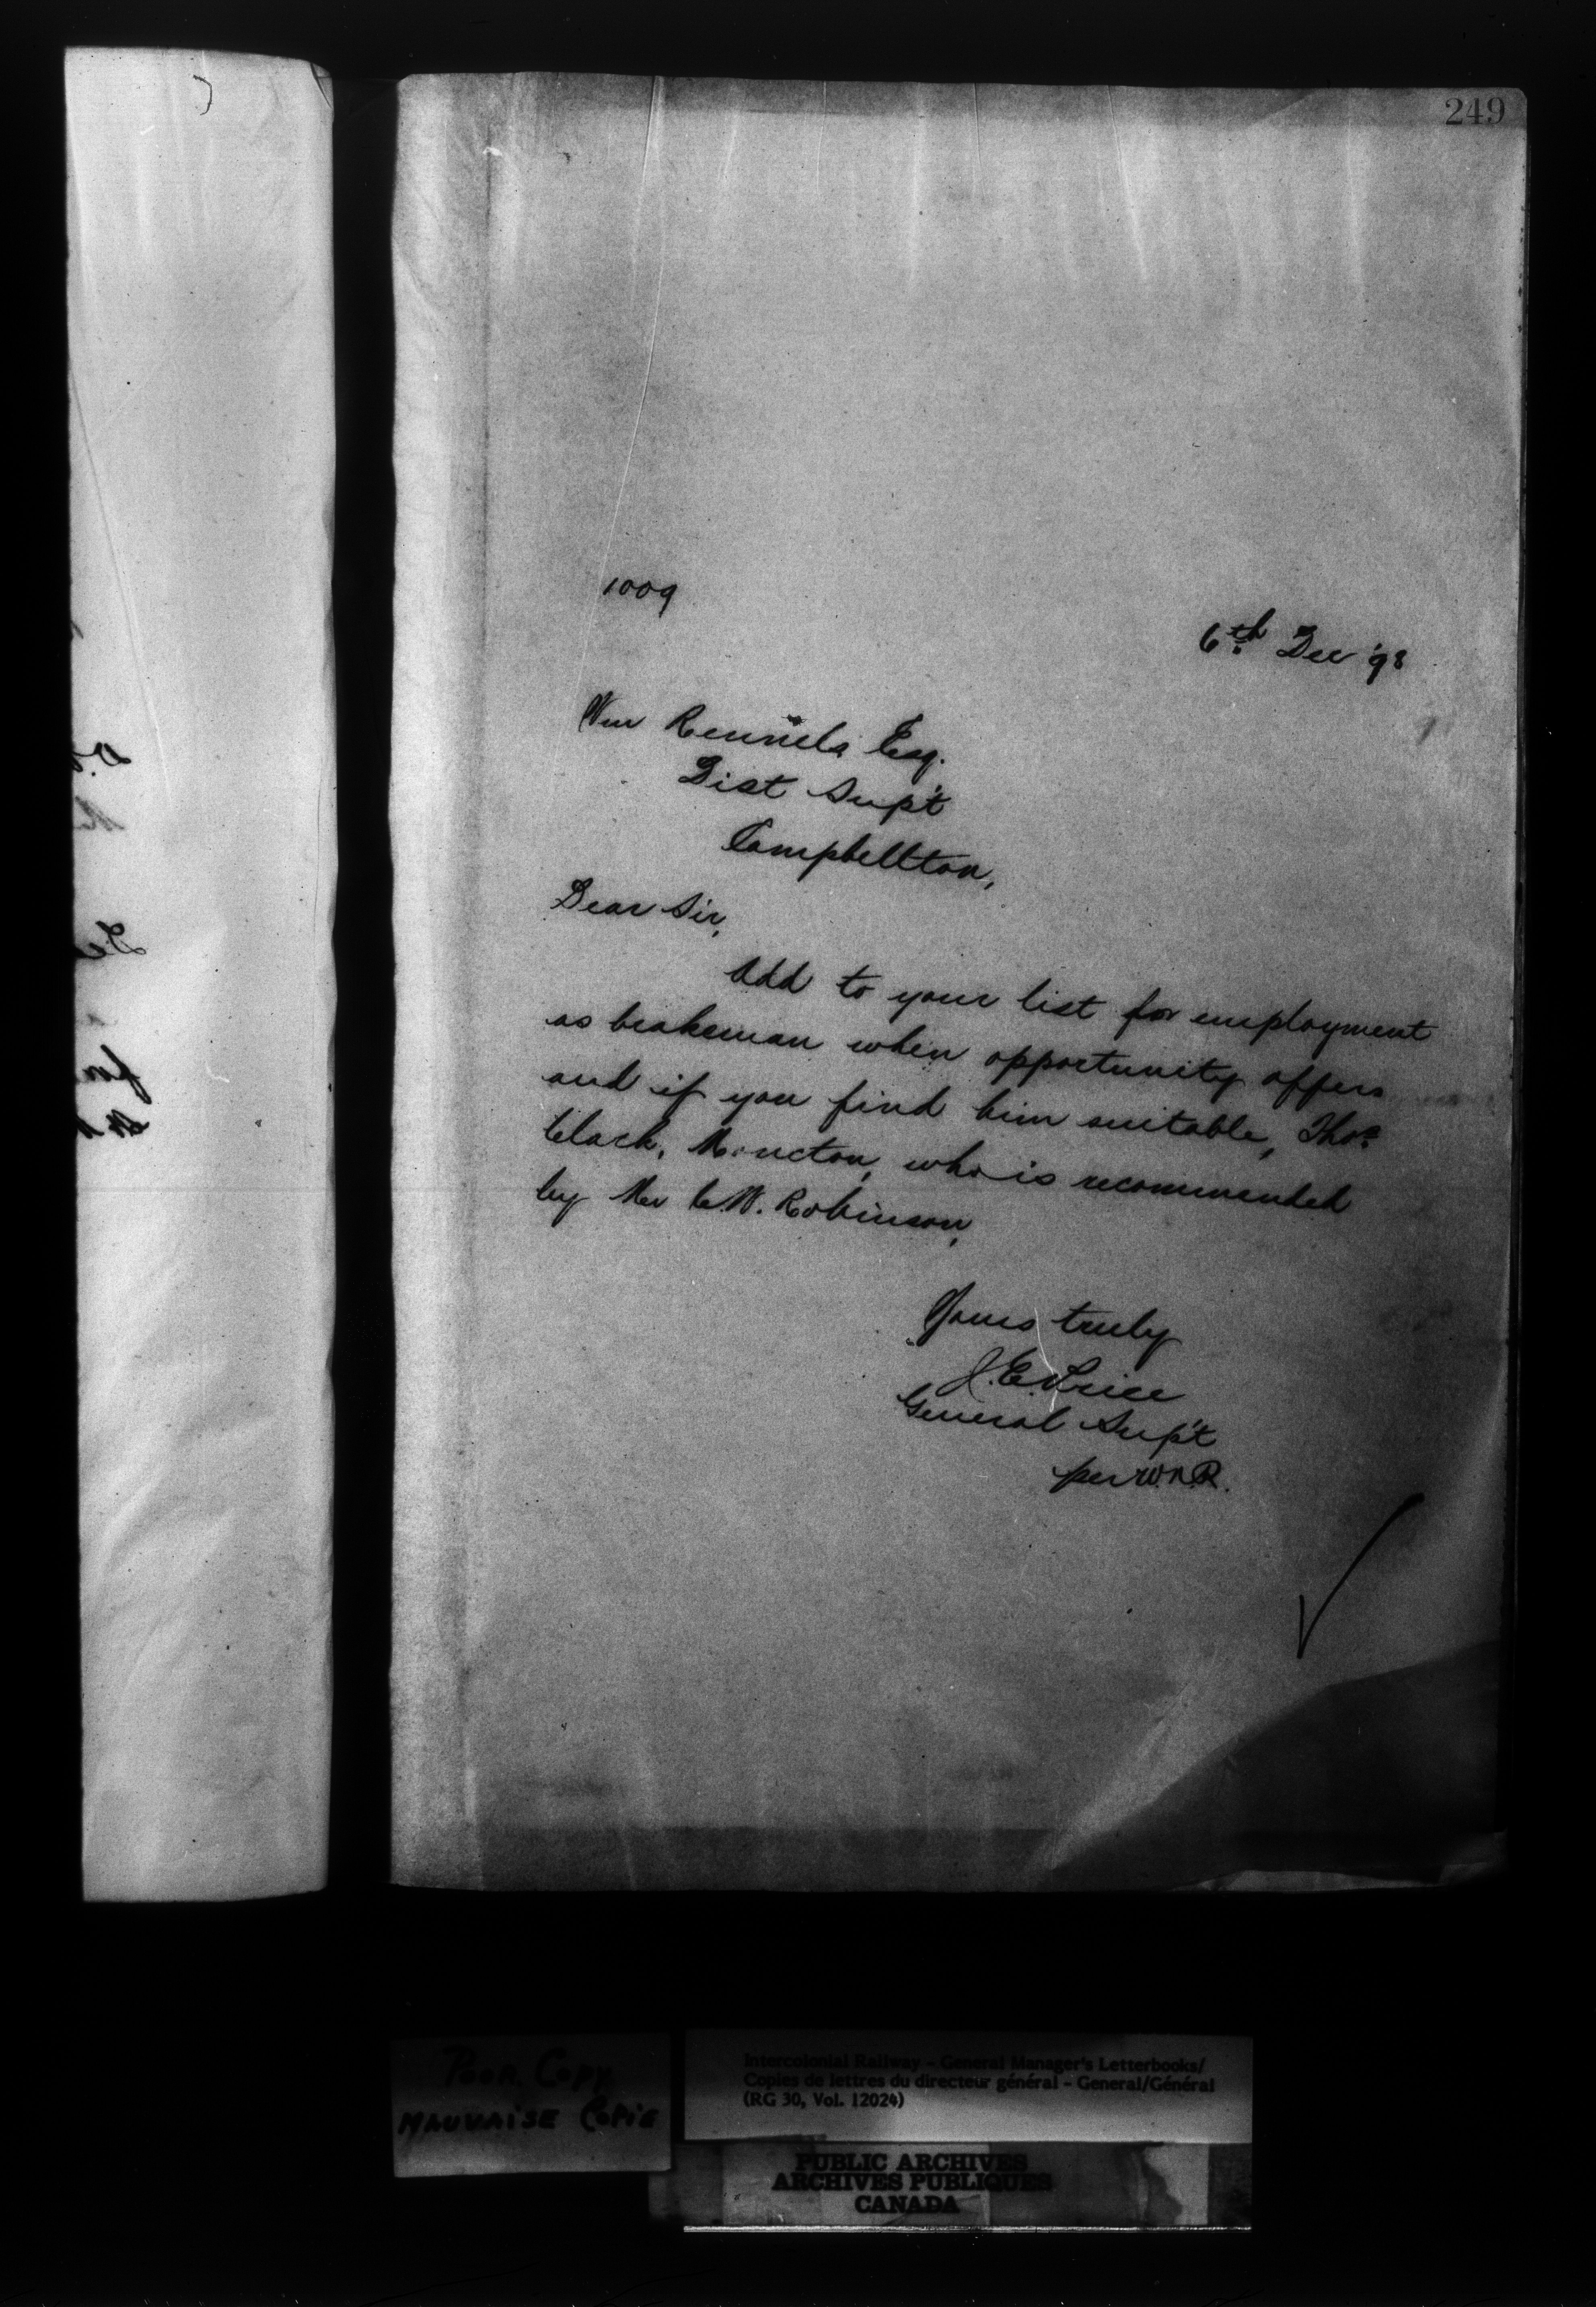 249
1009
6th Dec '98
Wm Rennels Esq.
Dist Sup't
Campbellton,
Dear Sir,
Add to your list for employment
as brakeman when opportunity offers
and if you find him suitable, Thos.
Clark, Moncton, who is recommended
by Mr C.W. Robinson,
Yours truly
J.E. Price
General Sup't
per W.N.R.
Poor Copy
Mauvaise Copie
Intercolonial Railway - General Manager's Letterbooks/
Copies de lettres du directeur général - General/Général
(RG 30, Vol. 12024)
PUBLIC ARCHIVES
ARCHIVES PUBLIQUES
CANADA